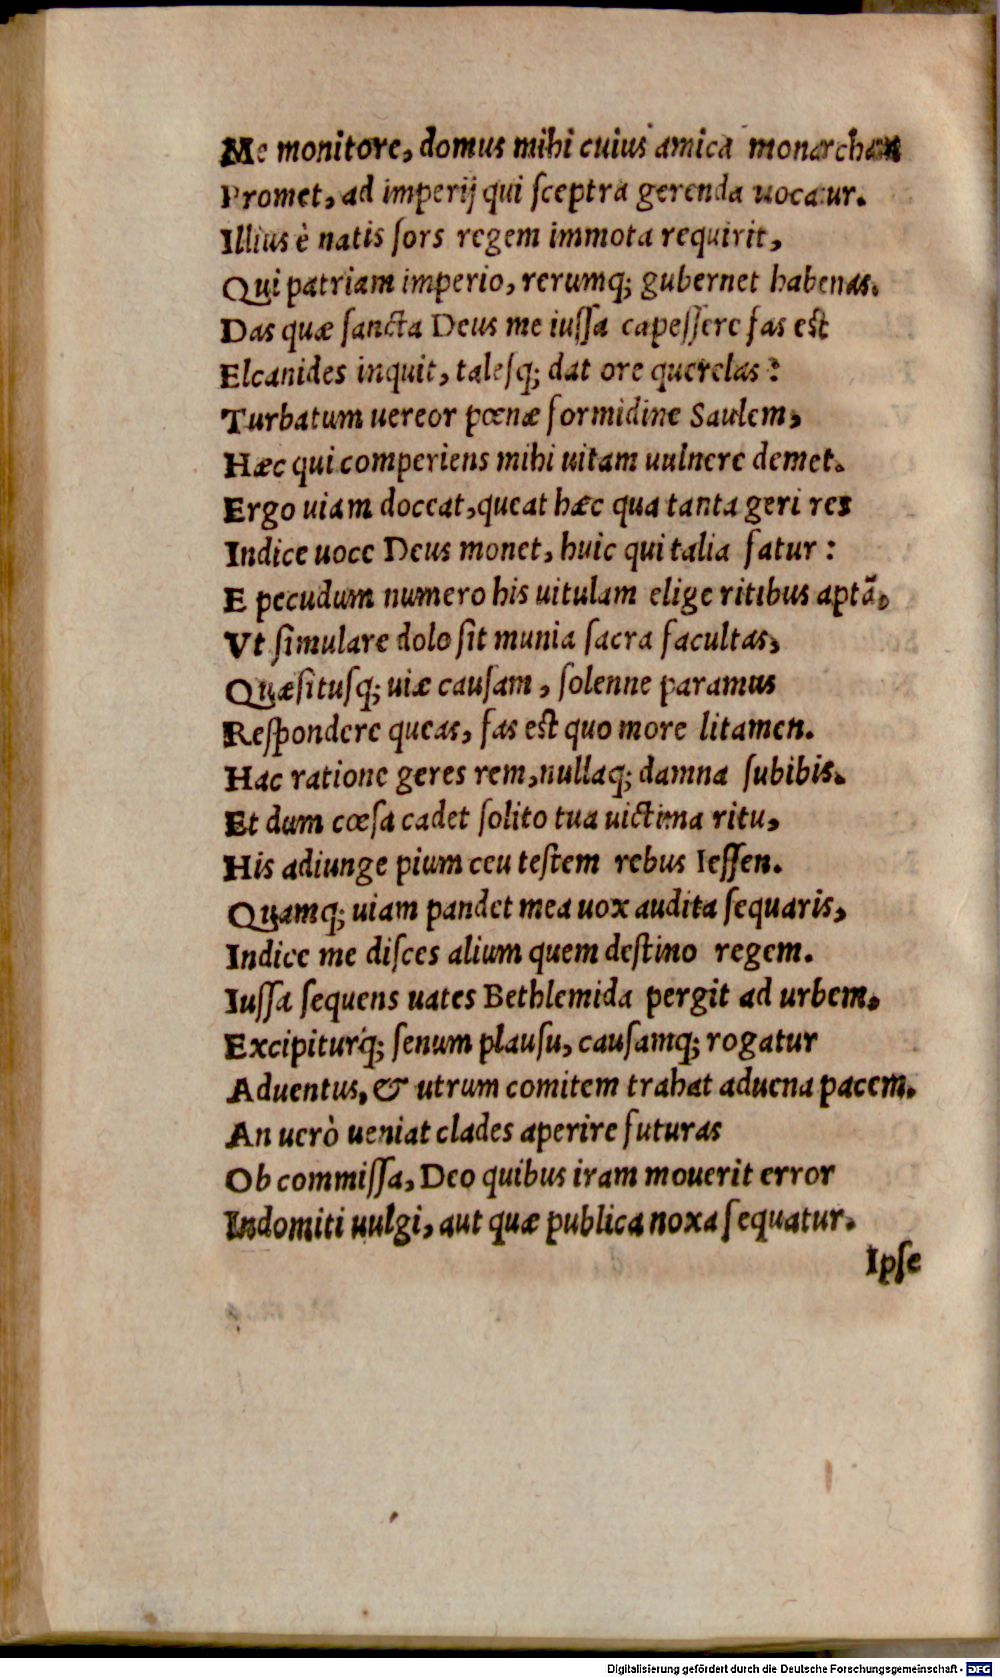 Me monitore, domus mihi cuius amica monarchan
Promet, ad imperij qui ſceptra gerenda uocatur.
Illius è natis ſors regem immota requirit,
Qui patriam imperio, rerumq; gubernet habenas.
Das quæ ſancta Deus me iuſſa capeſſere fas eſt
Elcanides inquit, taleſq; dat ore querelas:
Turbatum uereor pœnæ formidine Saulem,
Hæc qui comperiens mihi uitam uulnere demet.
Ergo uiam doceat, queat hæc qua tanta geri res
Indice uoce Deus monet, huic qui talia fatur:
E pecudum numero his uitulam elige ritibus aptã,
Vt ſimulare dolo ſit munia ſacra facultas,
Quæſituſq; uiæ cauſam, ſolenne paramus
Reſpondere queas, fas eſt quo more litamen.
Hac ratione geres rem, nullaq; damna ſubibis.
Et dum cœſa cadet ſolito tua uictima ritu,
His adiunge pium ceu teſtem rebus Ieſſen.
Quamq; uiam pandet mea uox audita ſequaris,
Indice me diſces alium quem deſtino regem.
Iuſſa ſequens uates Bethlemida pergit ad urbem.
Excipiturq́; ſenum plauſu, cauſamq; rogatur
Aduentus, & utrum comitem trahat aduena pacem.
An uerò ueniat clades aperire futuras
Ob commiſſa, Deo quibus iram mouerit error
Indomiti uulgi, aut quæ publica noxa ſequatur.
Ipſe
Digitalisierung gefördert durch die Deutsche Forschungsgemeinschaft - DFG